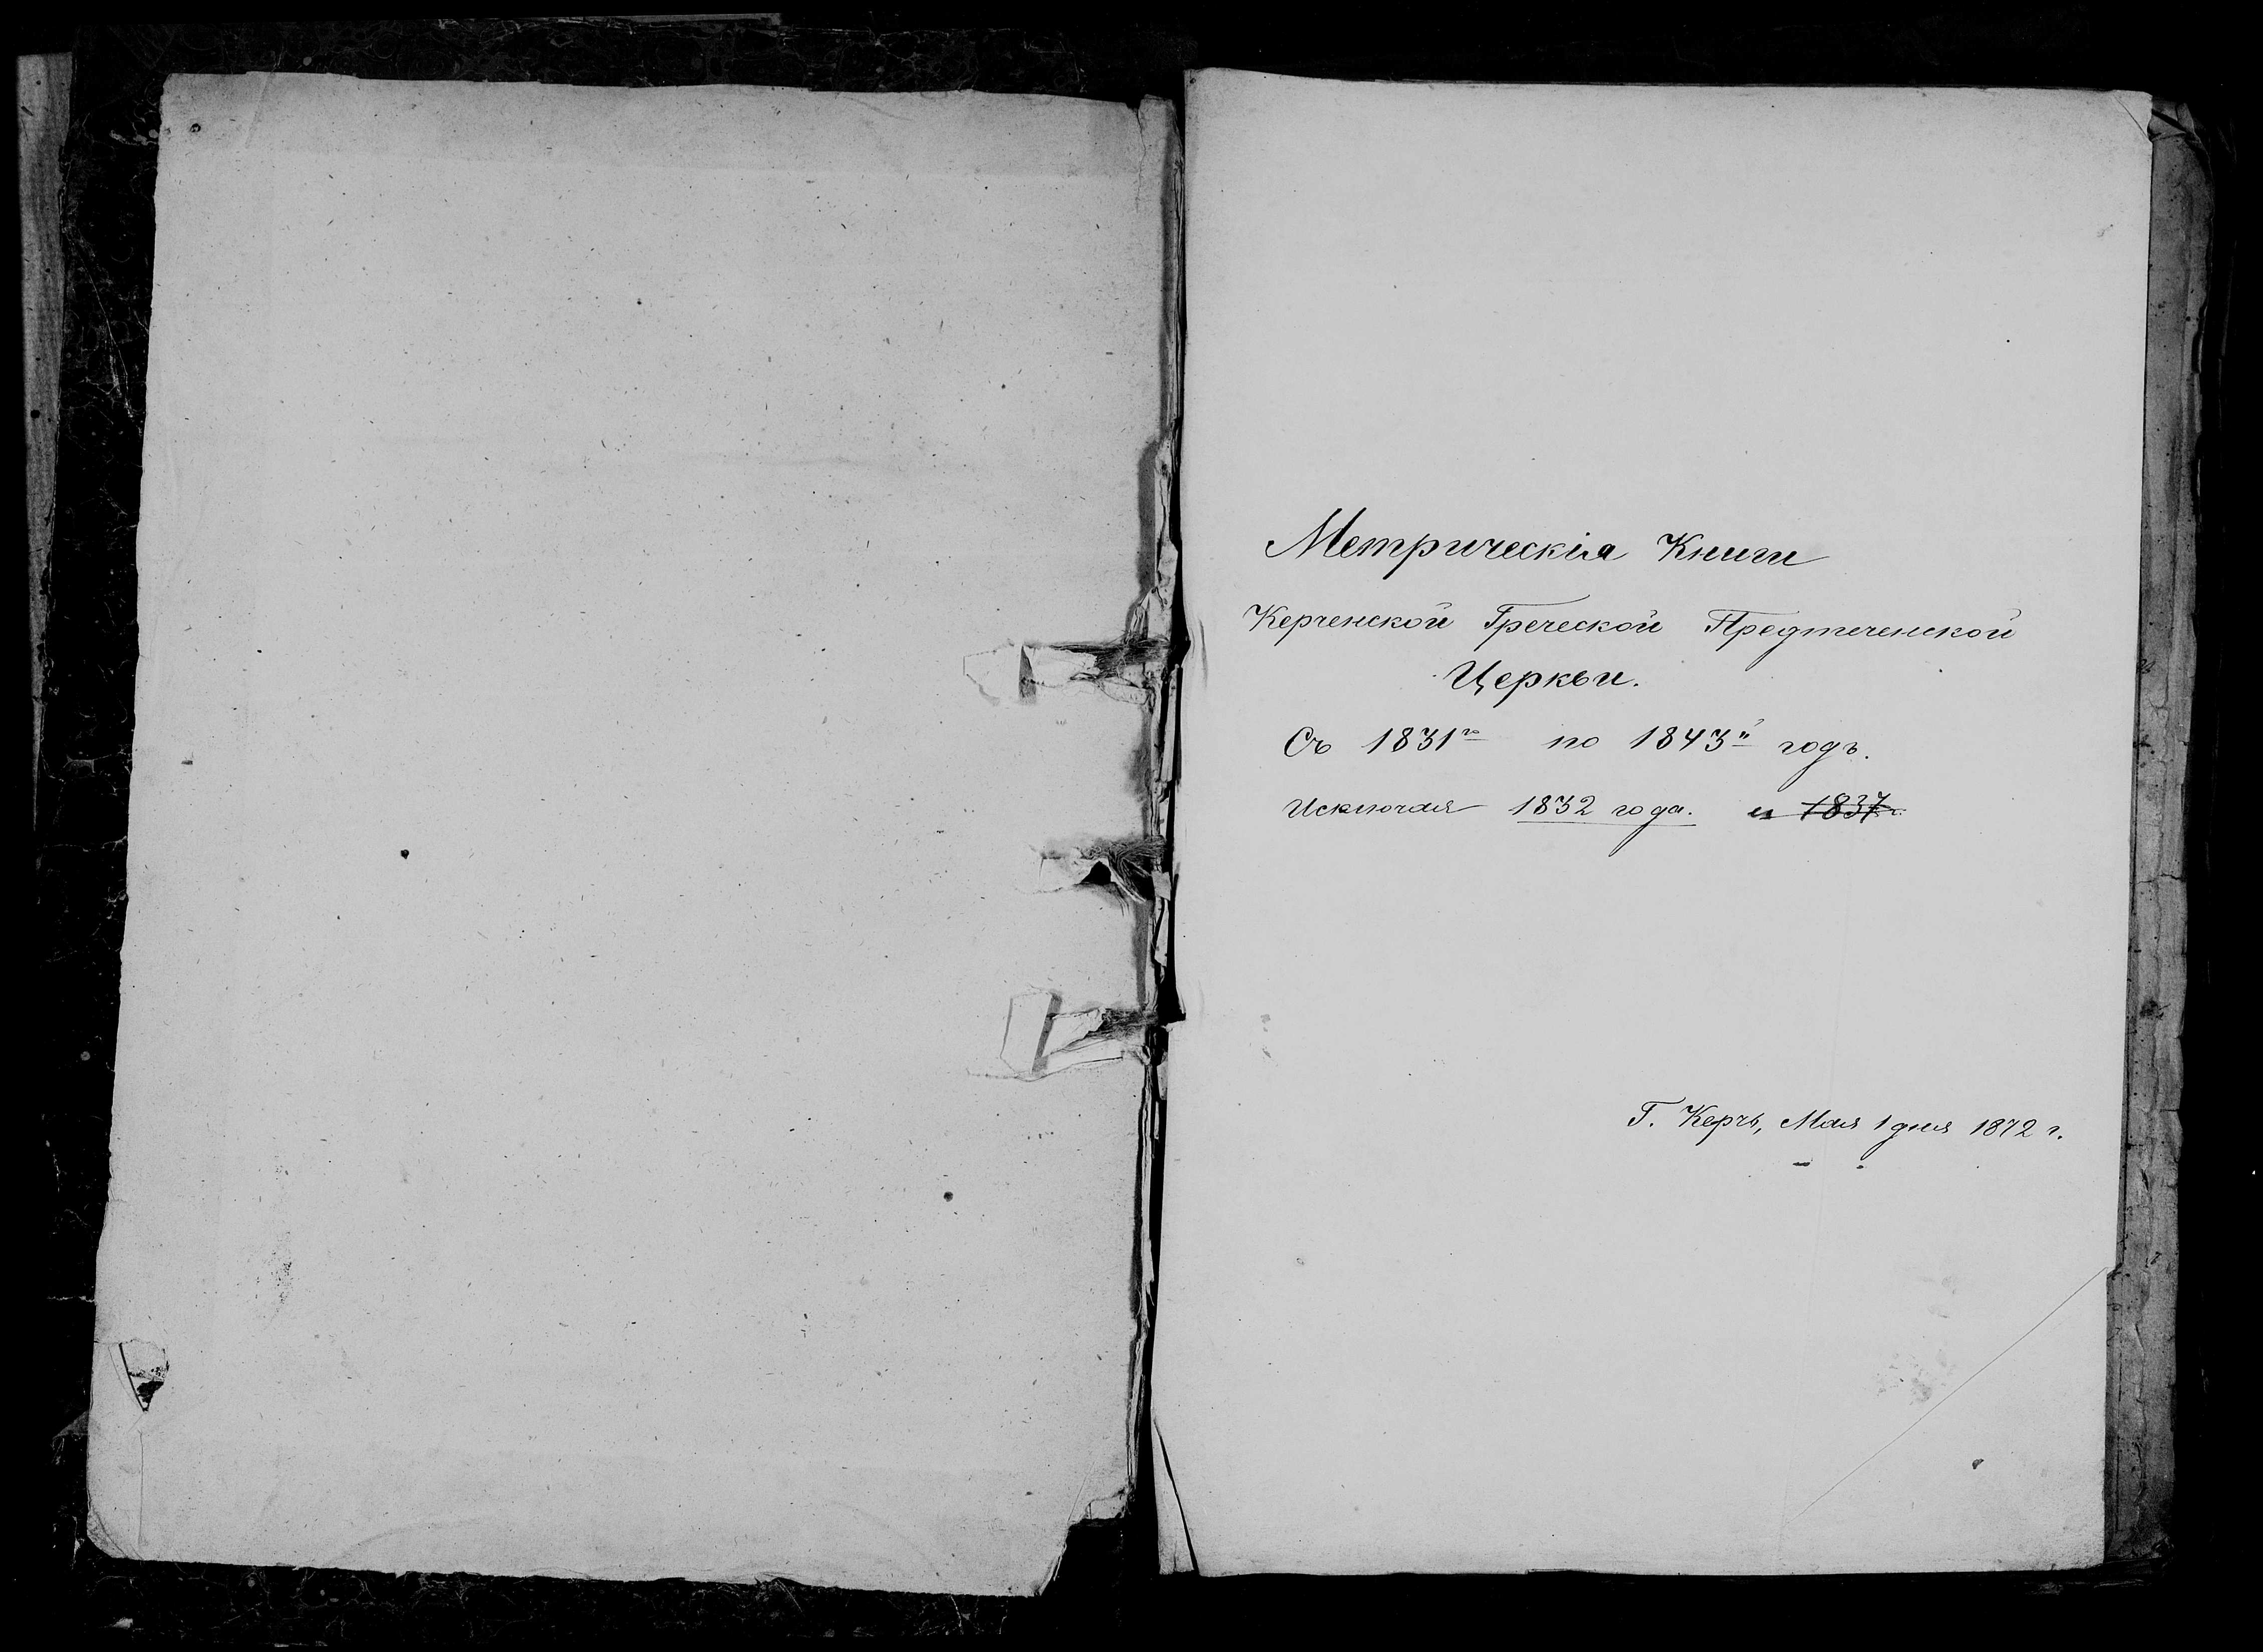 Метрическія Книги
Керченской Греческой Предтеченской
Церкви.
Съ 1831го по 1843й годъ.
Исключая 1832 года. и 1837 г.
Г. Керчь, Мая 1 дня 1872 г.